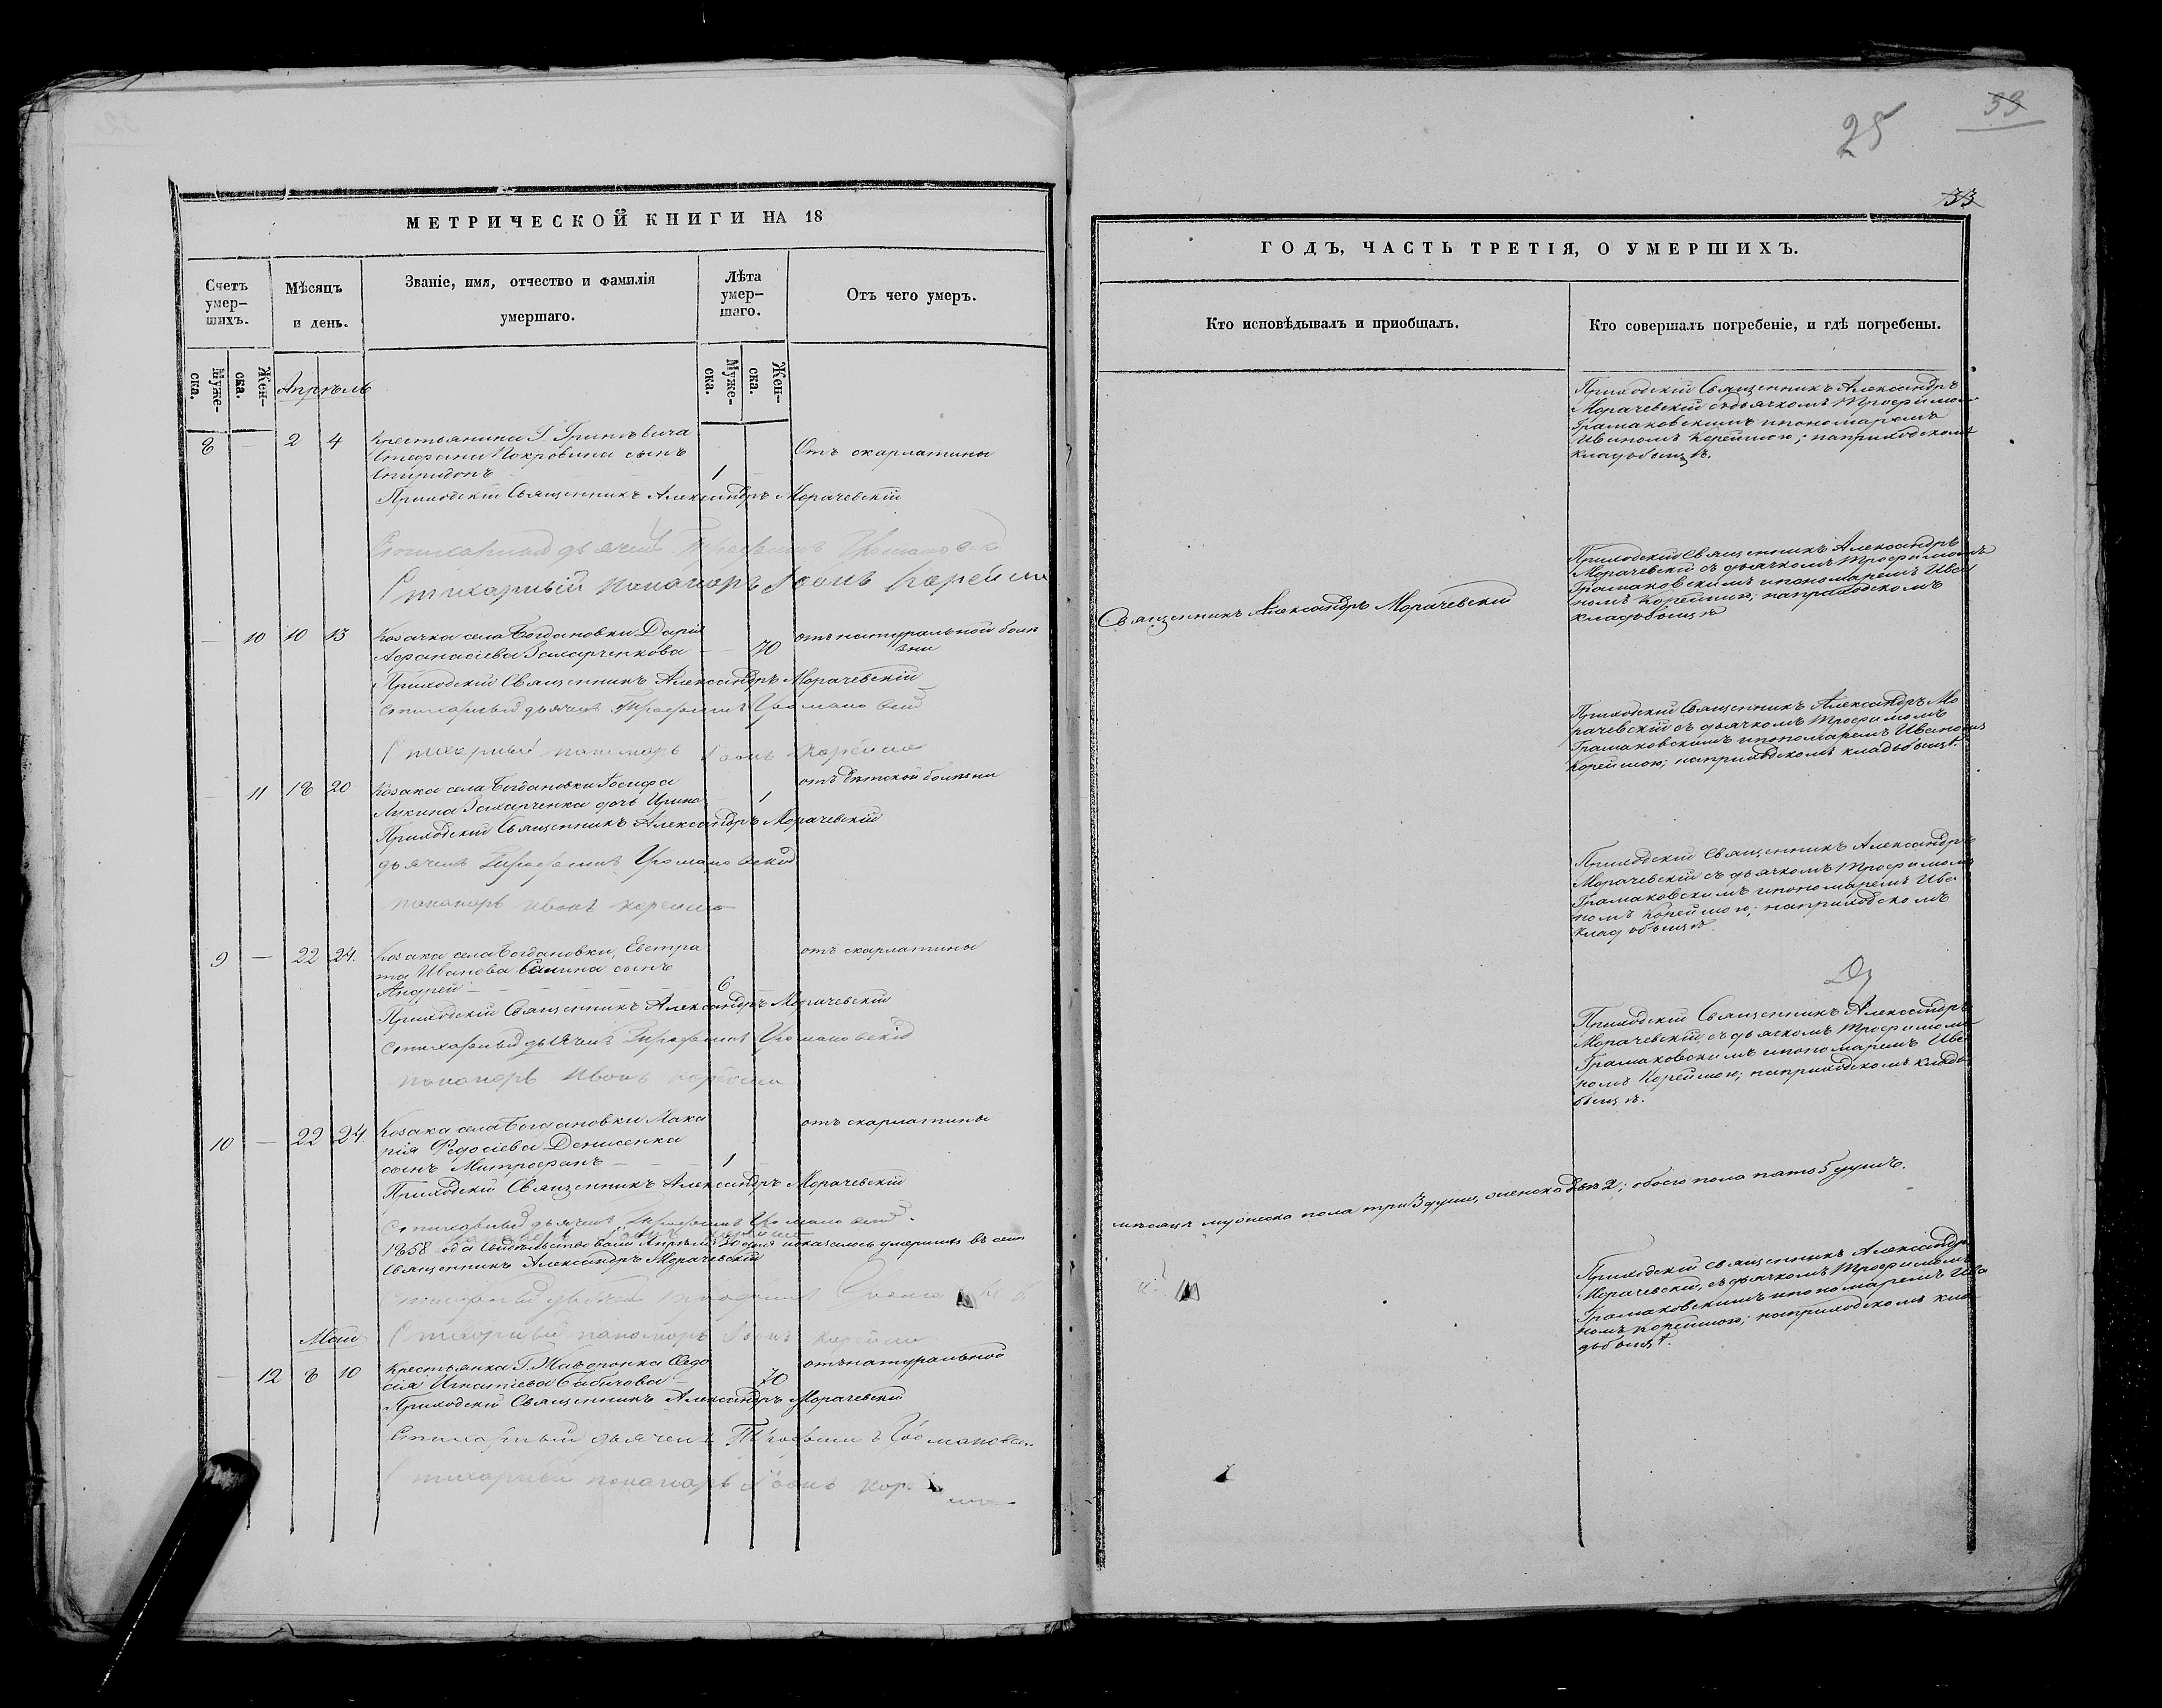 25
33
33
МЕТРИЧЕСКОЙ КНИГИ НА 18
Счетъ умер-шихъ.
Мѣсяцъ и день.
Званіе, имя, отчество и фамилія умершаго.
Лѣта умер-шаго.
Отъ чего умеръ.
Муже-ска.
Жен-ска.
Апрѣль
Муже-ска.
Жен-ска.
8 — 2 4 Крестьянина Г. Гриневича
Стефана Покровина сынъ Отъ скарлатины
Спиридонъ 1 —
Приходскій Священникъ Александръ Морачевскій
Стихарный дьячекъ Трофимъ Громаковскій
Стихарный пономарь Іоанъ Корейша
— 10 10 13 Козачка села Богдановки Дарія отъ натуральной болѣ
Афанасіева Захарченкова — 70 зни
Приходскій Священникъ Александръ Морачевскій
Стихарный дьячекъ Трофимъ Громаковскій
Стихарный пономарь Іоанъ Корейша
— 11 18 20 Козака села Богдановки Іосифа отъ дѣтской болѣзни
Лукина Захарченка дочь Ирина 1
Приходскій Священникъ Александръ Морачевскій
дьячекъ Трофимъ Громаковскій
пономарь Иванъ Корейша
9 — 22 24. Козака села Богдановки, Евстра отъ скарлатины
та Иванова сынъ
Андрей — 6 —
Приходскій Священникъ Александръ Морачевскій
Стихарный дьячекъ Трофимъ Громаковскій
пономарь Иванъ Корейша
10 — 22 24. Козака села Богдановки Мака отъ скарлатины
рія Федосіева Денисенка
сынъ Митрофанъ — 1 —
Приходскій Священникъ Александръ Морачевскій
Стихарный дьячекъ Трофимъ Громаковскій.
пономарь Іоанъ Корейша
1858 года Свидѣтельствовали Апрѣля 30 дня показалось умершихъ въ семъ
Священникъ Александръ Морачевскій
Стихарный дьячекъ Трофимъ
Май Стихарный пономарь Іоанъ Корейша
— 12 8 10 Крестьянка Г. Ѳедо отъ натуральной
сія Игнатіева Бабичова — 70
Приходскій Священникъ Александръ Морачевскій
Стихарный дьячекъ Трофимъ Громаковск
Стихарный пономарь Іоанъ
ГОДЪ, ЧАСТЬ ТРЕТІЯ, О УМЕРШИХЪ.
Кто исповѣдывалъ и пріобщалъ.
Кто совершалъ погребеніе, и гдѣ погребены.
Приходскій Священникъ Александръ
Морачевскій съ дьячкомъ Трофимом
Грамаковскимъ и пономаремъ
Иваномъ Корейшою; на приходскомъ
кладьбыщѣ.
Священникъ Александръ Морачевскій
Приходскій Священникъ Александръ
Морачевскій съ дьячкомъ Трофимомъ
Грамаковскимъ и пономаремъ Ива
номъ Корейшою; на приходскомъ
кладьбыщѣ
Приходскій Священникъ Александръ Мо
рачевскій съ дьячкомъ Трофимомъ
Грамаковскимъ и пономаремъ Иваномъ
Корейшою; на приходскомъ кладьбыщѣ.
Приходскій Священникъ Александръ
Морачевскій съ дьячкомъ Трофимомъ
Грамаковскимъ и пономаремъ Ива
номъ Корейшою; на приходскомъ
кладьбыщѣ.
Приходскій Священникъ Александръ
Морачевскій, съ дьячкомъ Трофимомъ
Грамаковскимъ и пономаремъ Ива
номъ Корейшою; на приходскомъ кладь
быщѣ.
мѣсяцѣ мужеска пола три 3 души, женска двѣ 2; обоего пола пять 5 душъ.
Приходскій Священникъ Александръ
Морачевскій, съ дьячкомъ Трофимомъ
Грамаковскимъ и пономаремъ Ива
номъ Корейшою; на приходскомъ кла
дьбыщѣ.